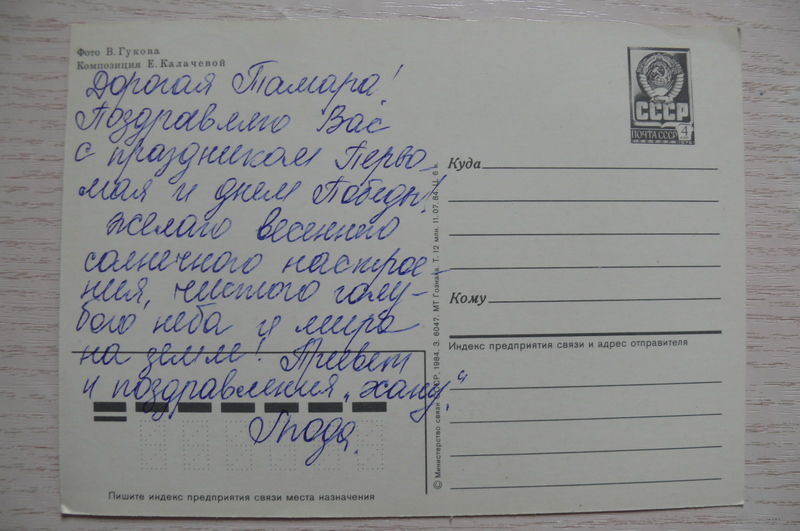 Фото В. Гукова
Композиция Е. Калачевой
Дорогая Тамара!
Поздравляю Вас
с праздником Перво-
мая и днем Победы!
Желаю весеннего
солнечного настрое-
ния, чистого голу-
бого неба и мира
на земле! Привет
и поздравления „хану."
Люда.
Пишите индекс предприятия связи места назначения
СССР
ПОЧТА СССР
4
Куда
Кому
Индекс предприятия связи и адрес отправителя
© Министерство связи СССР, 1984. З. 8047. МТ Гознака. Т. 12 млн. 11.07.84. Ц. 6 к.